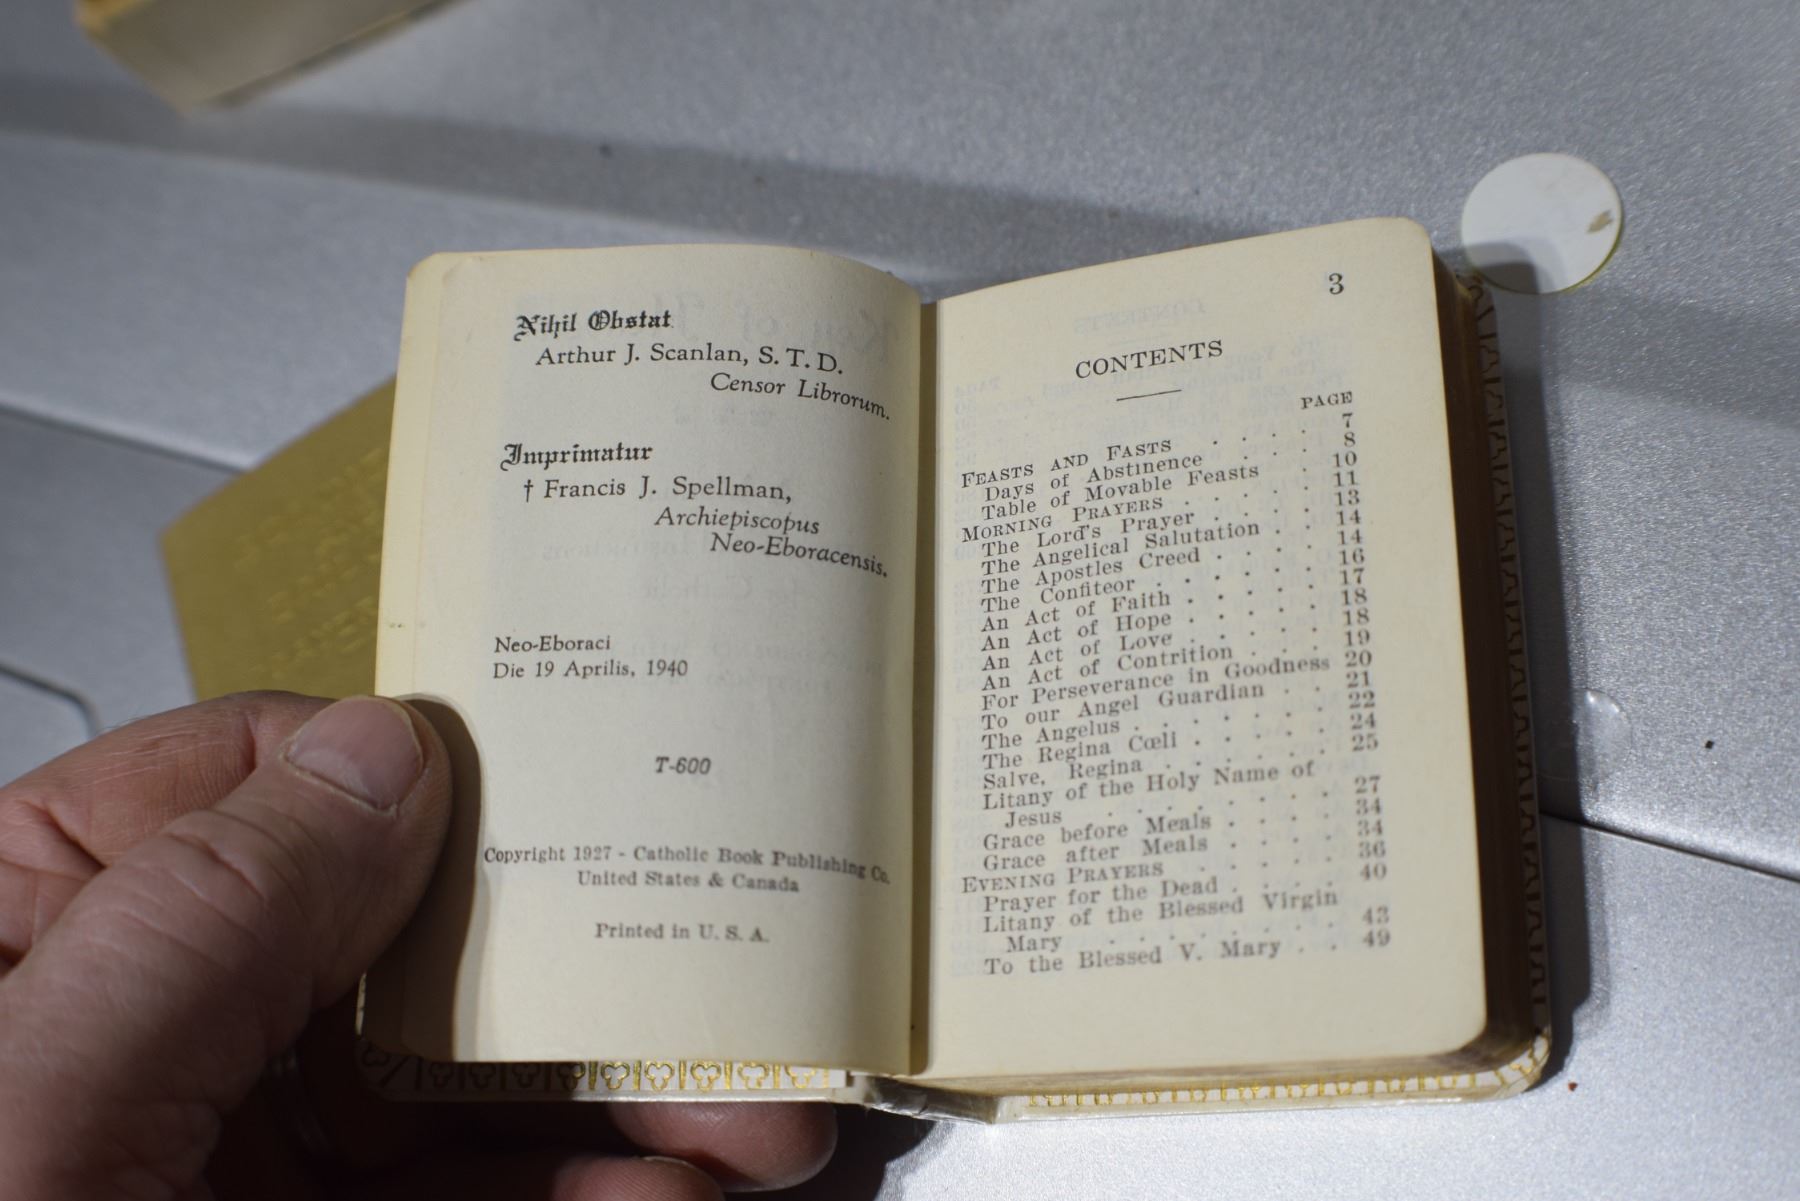 Nihil Obstat
Arthur J. Scanlan, S. T. D.
Censor Librorum.
Imprimatur
† Francis J. Spellman,
Archiepiscopus
Neo-Eboracensis.
Neo-Eboraci
Die 19 Aprilis, 1940
T-600
Copyright 1927 - Catholic Book Publishing Co.
United States & Canada
Printed in U. S. A.
3
CONTENTS
PAGE
FEASTS AND FASTS . . . . 7
Days of Abstinence . . . 8
Table of Movable Feasts . 10
MORNING PRAYERS . . . . 11
The Lord's Prayer . . . . 13
The Angelical Salutation . . 14
The Apostles Creed . . . . 14
The Confiteor . . . . . 16
An Act of Faith . . . . 17
An Act of Hope . . . . 18
An Act of Love . . . . 18
An Act of Contrition . . . 19
For Perseverance in Goodness 20
To our Angel Guardian . . 21
The Angelus . . . . . . 22
The Regina Cœli . . . . 24
Salve, Regina . . . . . 25
Litany of the Holy Name of
Jesus . . . . . . 27
Grace before Meals . . . . 34
Grace after Meals . . . . 34
EVENING PRAYERS . . . . 36
Prayer for the Dead . . . . 40
Litany of the Blessed Virgin
Mary . . . . . . 43
To the Blessed V. Mary . . 49